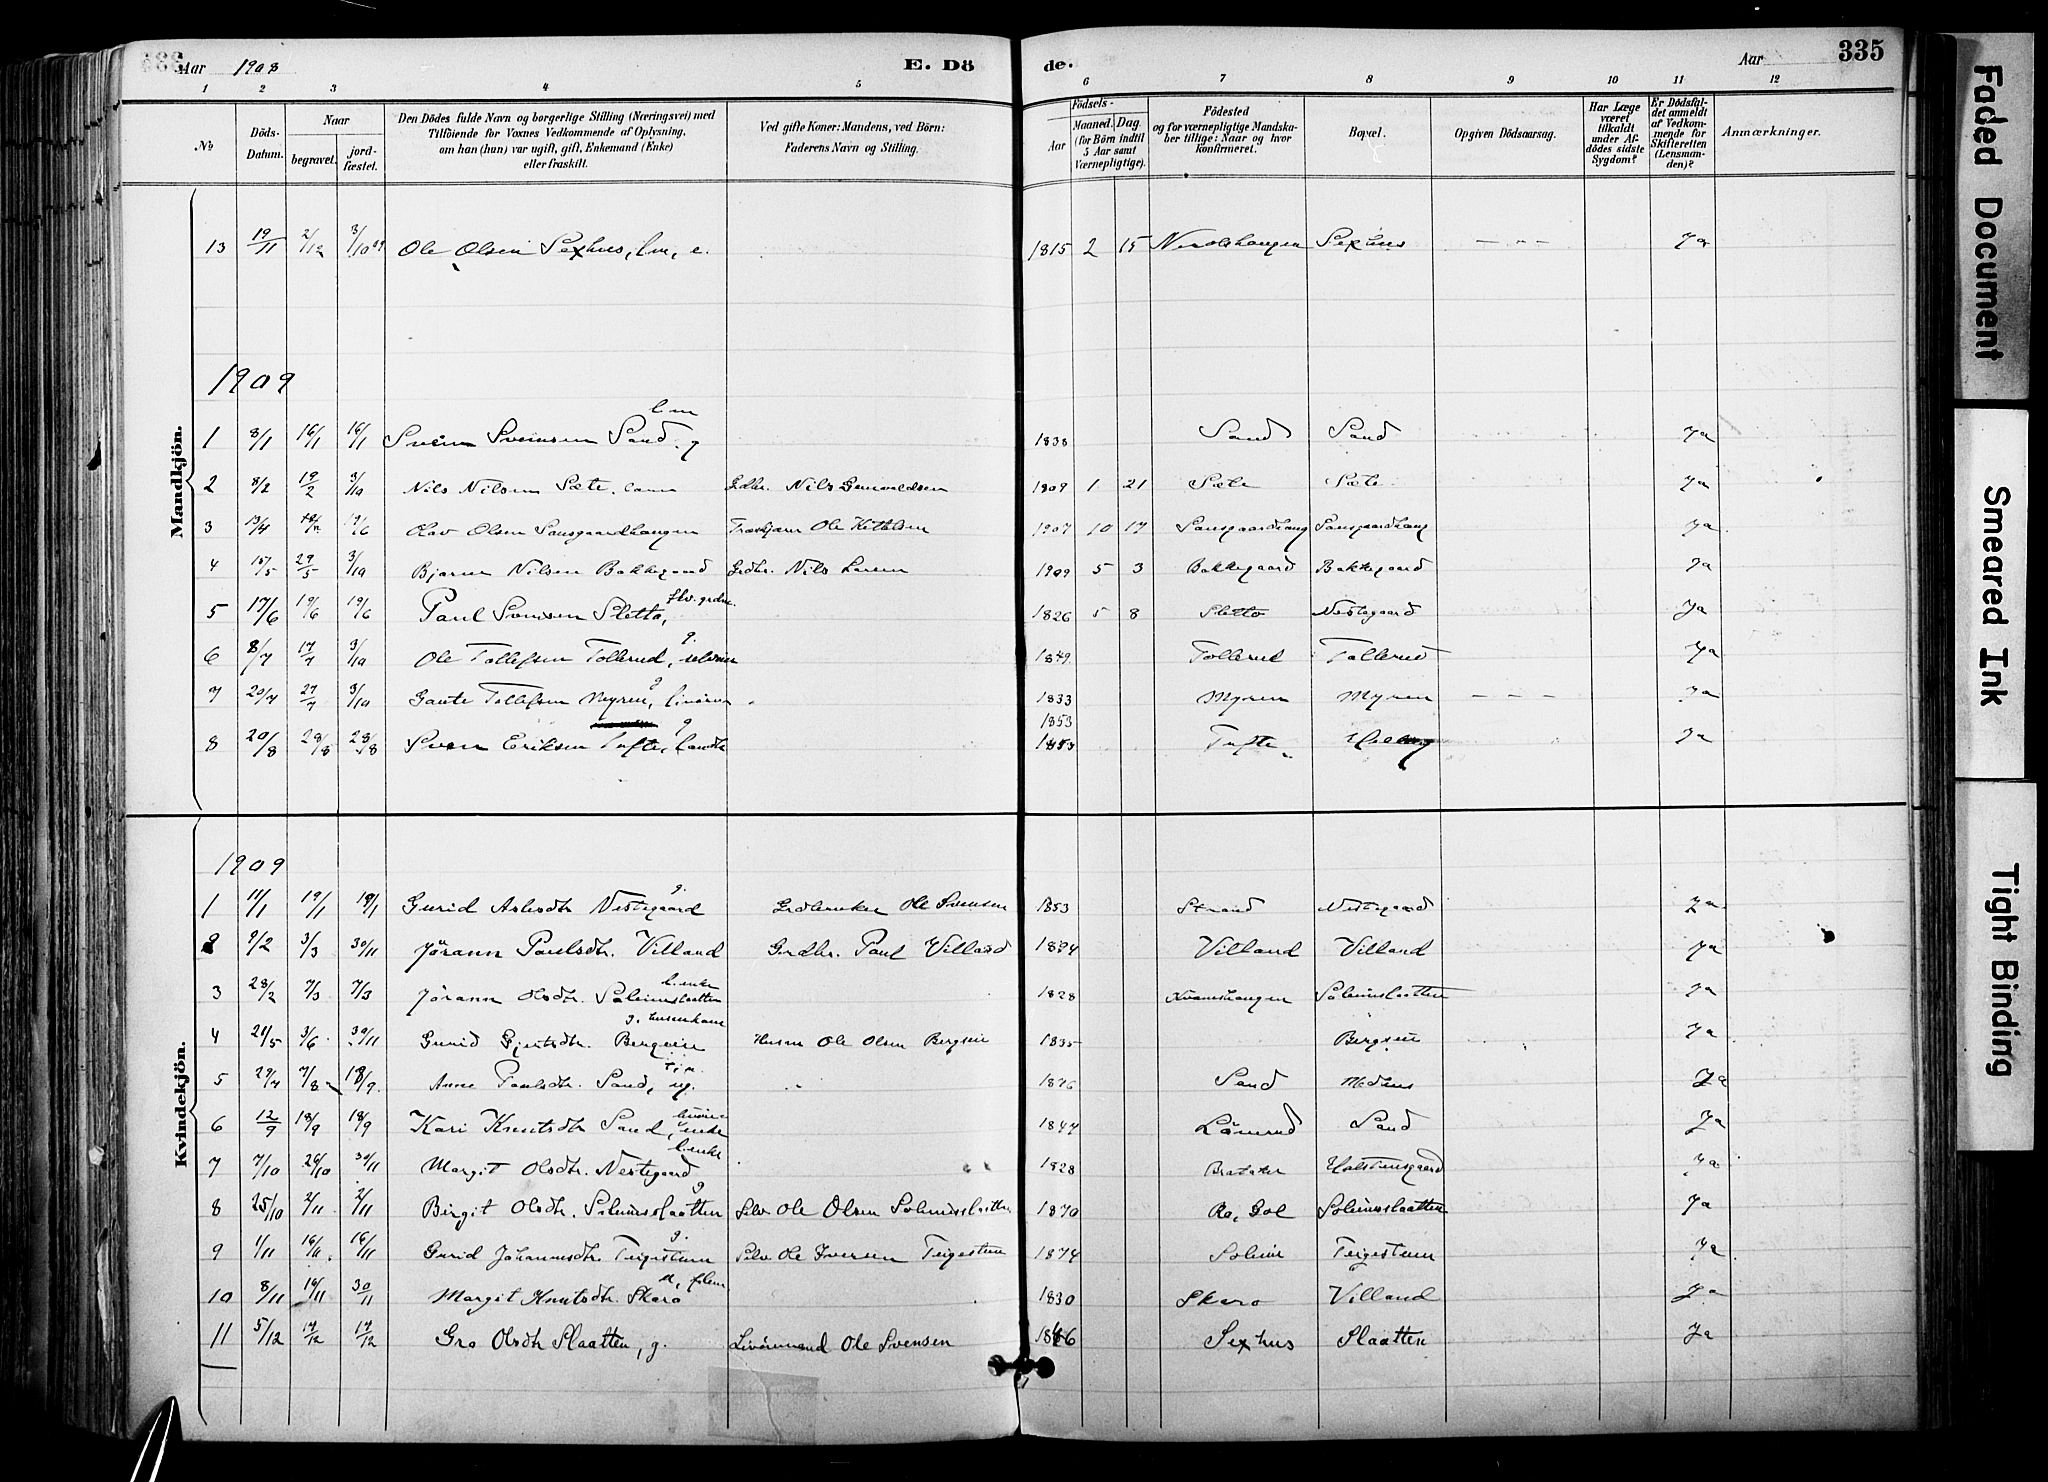 Aar 1908 E. Dö
1 2 3 4 5
No
Döds-Datum.
Naar
begravet.
jord-fæstet.
Den Dödes fulde Navn og borgerlige Stilling (Næringsvei) med Tilföiende for Voxnes Vedkommende af Oplysning, om han (hun) var ugift, gift, Enkemand (Enke) eller fraskilt.
Ved gifte Koner: Mandens, ved Börn: Faderens Navn og Stilling.
de. Aar 335
6 7 8 9 10 11 12
Födsels-
Aar
Maaned. Dag
(for Börn indtil 5 Aar samt Værnepligtige).
Födested og for værnepligtige Mandskaber tillige: Naar og hvor konfirmeret.
Bopæl.
Opgiven Dödsaarsag.
Har Læge været tilkaldt under Afdödes sidste Sygdom?
Er Dödsfaldet anmeldt af Vedkommende for Skifteretten (Lensmanden)?
Anmærkninger.
Mandkjön.
13 19/11 2/12 3/10 09 Ole Olsen Sexhus, lm, e. 1815 2 15 Sexhus — — Ja
1909
1 8/1 16/1 16/1 Svein Sveinsen Sand, lm g 1838 Sand Sand Ja
2 8/2 19/2 3/10 Nils Nilsen Sæte Gdbr. Nils Gunvaldsen 1909 1 21 Sæte Sæte Ja
3 13/4 19/6 Olav Olsen Sansgaardhaugen Ole Ketilsen 1907 10 17 Sansgaardhaug Sansgaardhaug Ja
4 15/5 29/5 3/10 Bjarne Nilsen Bakkegaard Grdbr. Nils Larsen 1909 5 3 Bakkegaard Bakkegaard Ja
5 17/6 19/6 19/6 Paul Svensen Sletto, 1826 5 8 Sletto Nestegaard Ja
6 8/7 17/7 3/10 Ole Tollefsen Tollerud, g. selveier 1849 Tollerud Tollerud Ja
7 20/7 27/7 3/10 Gaute Tollefsen Myren, g 1833 Myren Myren — — — Ja
8 20/8 28/8 28/8 Sven Eriksen Tufte, g 1853 1853 Tufte Ja
Kvindekjön.
1909
1 11/1 19/1 19/1 Gurid Aslesdtr Nestegaard g. Grdbruker Ole Svensen 1853 Strand Nestegaard Ja
2 9/2 3/3 30/11 Jörann Paulsdtr. Villand Gardbr. Paul Villand 1894 Villand Villand Ja
3 28/2 7/3 7/3 Jörann Olsdtr. Soleimslaatten l.enke 1828 Kvamshaugen Soleimslaatten Ja
4 21/5 3/6 30/11 Gurid Gjertsdtr. Bergseie g. husmkone Husm Ole Olsen Bergseie 1835 Bergseie Ja
5 29/7 7/8 18/9. Anne Paulsdtr. Sand, ug. 1876 Sand Medhus Ja
6 12/9 18/9 18/9 Kari Knutsdtr Sand, enke 1847 Lönrud Sand Ja
7 7/10 26/10 30/11 Margit Olsdtr. Nestegaard l.enke 1828 Brataker Holstensgaard Ja
8 25/10 2/11 2/11 Birgit Olsdtr. Soleimsslaatten g Selv Ole Olsen Soleimsslaatten 1870 Ro, Gol Soleimsslaatten Ja
9 1/11 16/11 16/11 Gurid Johannesdtr. Teigestuen g. Selv Ole Iversen Teigestuen 1874 Soleim Teigestuen Ja
10 8/11 16/11 30/11 Margit Knutsdtr. Skaro 1830 Skaro Villand Ja
11 5/12 17/12 17/12 Gro Olsdtr Slaatten, g. Livöremand Ole Svensen 1846 Sexhus Slaatten Ja
Faded Document
Smeared Ink
Tight Binding